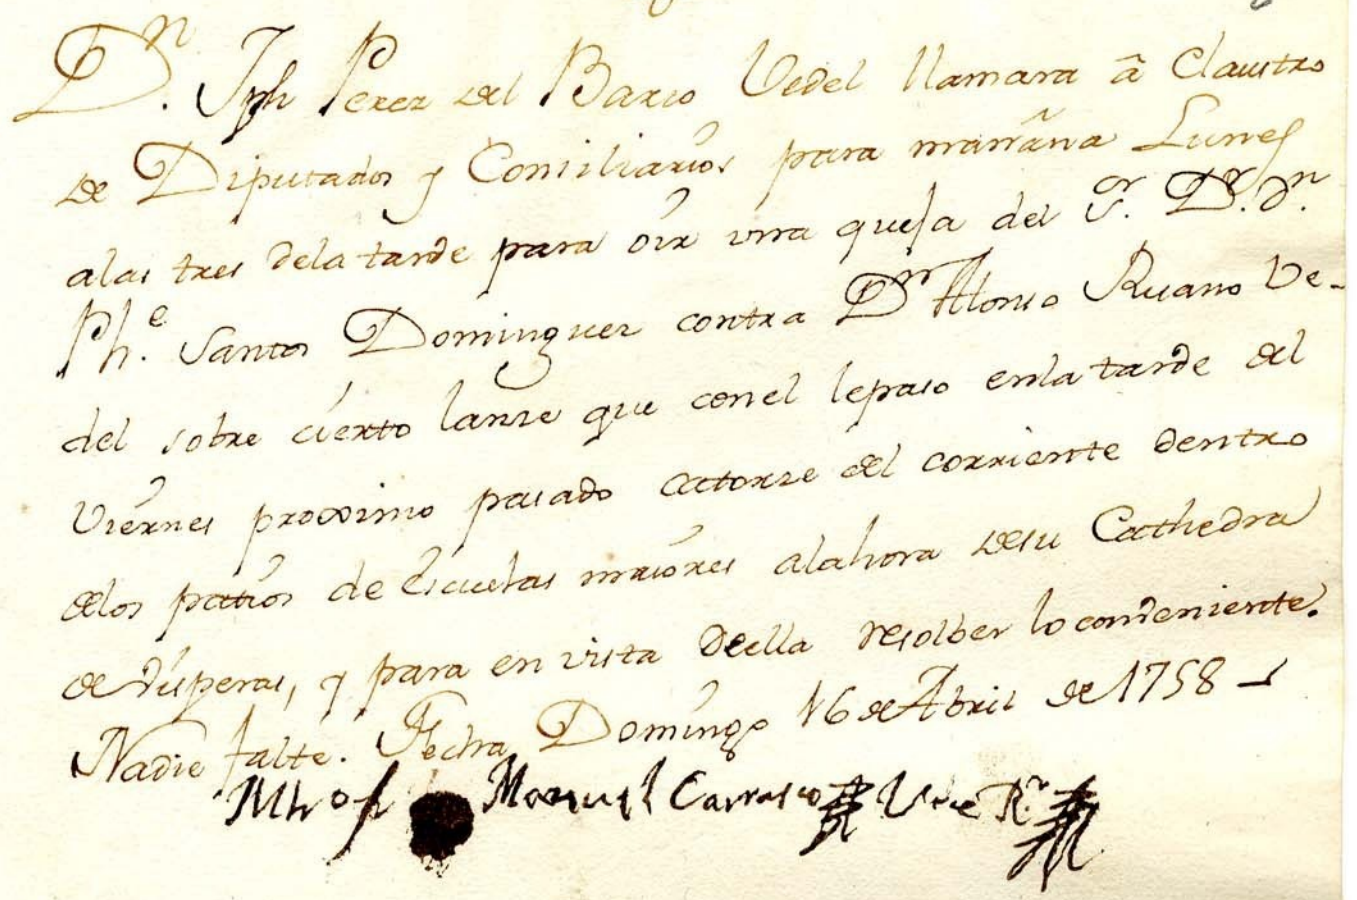 Dn. Jph Perez del Barrio Vedel llamara â Claustro
de Diputados y Consiliarios para mañana Lunes
alas tres dela tarde para oir vna quexa del Sr. Dr. dn.
Phe. Santos Dominguez contra Dn Alonso Ruano Ve-
del sobre cierto lanze que conel lepaso enla tarde del
Viernes proximo pasado catorze del corriente dentro
delos patios de Escuelas maiores alahora desu Cathedra
de Visperas, y para en vista deella resolber lo conveniente.
Nadie falte. Fecha Domingo 16 de Abril de 1758
Mro fr Manuel Carrasco Vice Rr